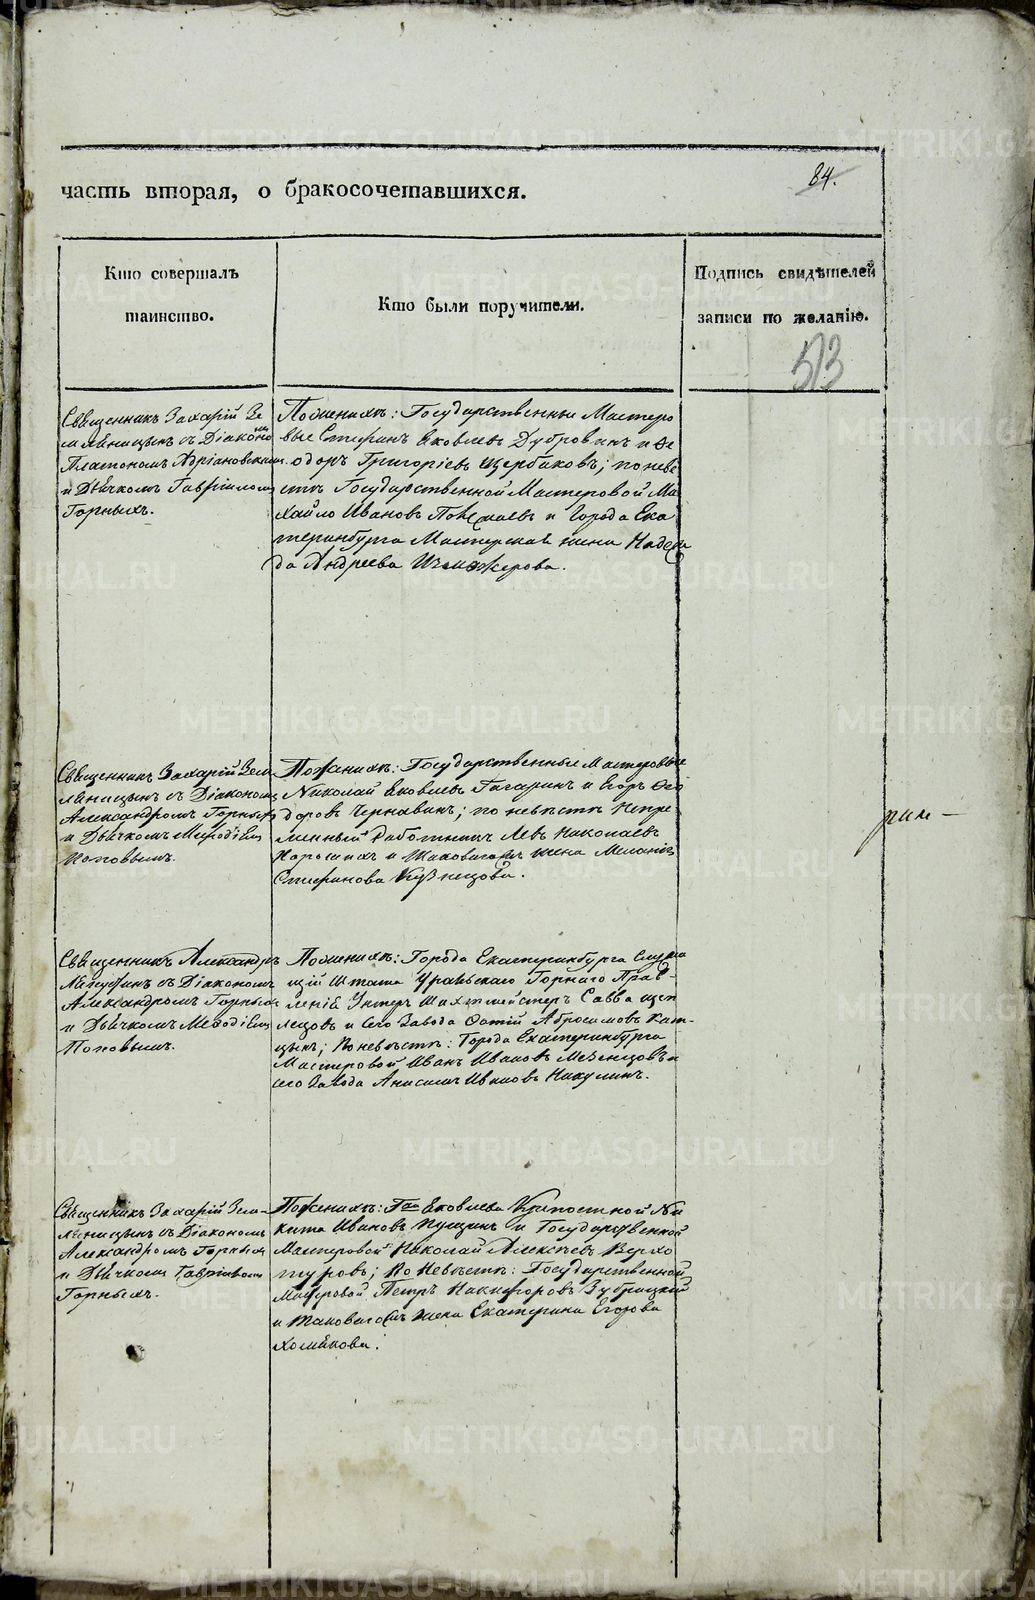 часть вторая, о бракосочетавшихся.
84.
Кто совершалъ
таинство.
Кто были поручители.
Подпись свидѣтелей
записи по желанію.
513
Священникъ Захарій Зе
мляницынъ съ Діакономъ
Платономъ Адріановскимъ
и Дьячкомъ Гавріиломъ
Горныхъ.
По женихѣ: Государственные Мастеро
вые Стефанъ Яковлевъ Дубровинъ и Ѳе
одоръ Григоріевъ Щербаковъ; по неве
стѣ Государственной Мастеровой Ми
хайло Ивановъ и Города Ека
теринбурга жена Надеж
да Андреева
Священникъ Захарій Зем
ляницынъ съ Діакономъ
Александромъ Горныхъ
и Дьячкомъ Меѳодіемъ
Поповымъ.
По женихѣ: Государственные Мастеровые
Николай Яковлевъ Гагаринъ и Егоръ Ѳео
доровъ Чернавинъ; по невѣстѣ Непре
менный Работникъ Левъ Николаевъ
и таковагожъ жена Меланія
Стефанова Кузнецова.
рин —
Священникъ Александръ
съ Діакономъ
Александромъ Горныхъ
и Дьячкомъ Меѳодіемъ
Поповымъ.
По женихѣ: Города Екатеринбурга Служа
щій Штата Уральскаго Горнаго Прав-
ленія Унтеръ Шихтмейстеръ Савва
и сего Завода Абросимовъ
по невѣстѣ: Города Екатеринбурга
Мастеровой Иванъ Ивановъ Мезенцовъ и
сего Завода Анисимъ Ивановъ Никулинъ.
Священникъ Захарій Зем-
ляницынъ съ Діакономъ
Александромъ Горныхъ
и Дьячкомъ Гавріиломъ
Горныхъ.
По женихѣ: Яковлева Крепостной Ни
кита Ивановъ и Государственной
Мастеровой Николай Алексѣевъ Верхо
туровъ; по Невѣстѣ: Государственной
Мастеровой Петръ Никифоровъ Зубрицкій
и таковагожъ жена Екатерина Егорова
Хомякова.
METRIKI.GASO-URAL.RU